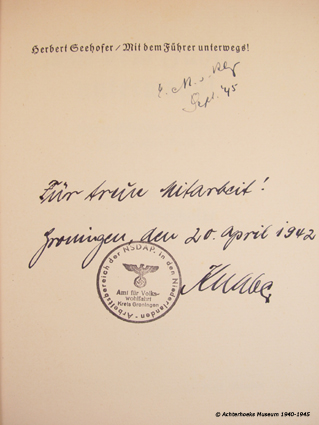 Herbert Seehofer / Mit dem Führer unterwegs!
Sept. '45
Für treue Mitarbeit!
Groningen, den 20. April 1942
Arbeitsbereich der NSDAP. in den Niederlanden
Amt für Volks-
wohlfahrt
Kreis Groningen
© Achterhoeks Museum 1940-1945